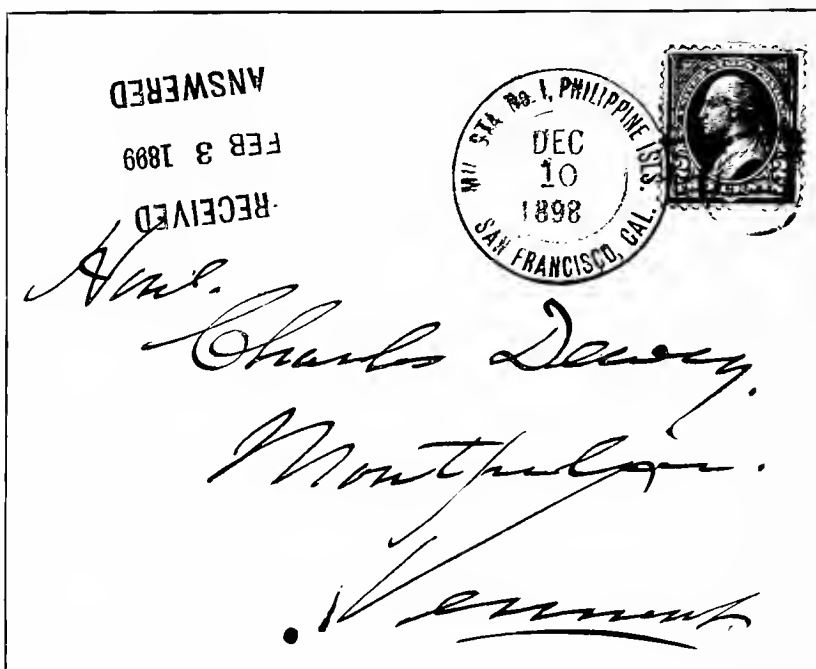 ANSWERED
FEB 3 1899
RECEIVED
MIL STA No. 1, PHILIPPINE ISLS.
DEC
10
1898
SAN FRANCISCO, CAL.
Hon.
Charles Dewey.
Montpelier.
Vermont.